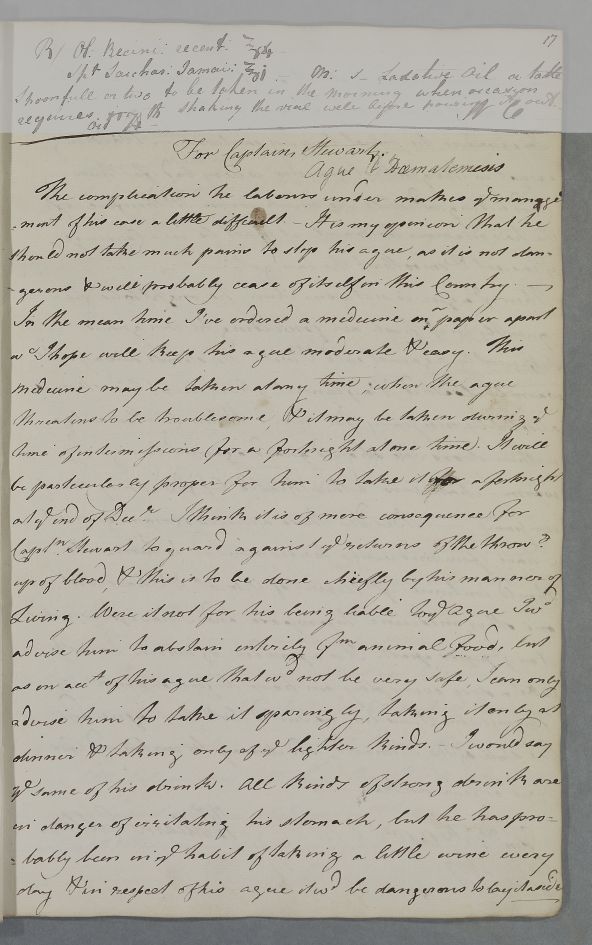 17
R/ Ol. Recini: recent: ℥
Spt Sacchar: Jamai: ℥j M: S— Laxative Oil a table
Spoonfull or two to be taken in the morning when occasion
requires, shaking the vial well before pouring it out
For Captain Stewart.
Ague & Hæmatemesis
The complication he labours under makes ye manage
-ment of his case a little difficult — It is my opinion that he
should not take much pains to stop his ague, as it is not dan-
-gerous & will probably cease of itself in this Country. —
In the mean time I've ordered a medicine on paper apart
wc I hope will keep his ague moderate & easy. This
medicine may be taken at any time, when the ague
threatens to be troublesome, & it may be taken during ye
time of intermissions for a fortnight at one time. It will
be particularly proper for him to take it for a fortnight
at ye end of Decr. I think it is of more consequence for
Captn. Stewart to guard against ye returns of the throwg
up of blood, & this is to be done chiefly by his manner of
Living. Were it not for his being liable to ye Ague I wd
advise him to abstain entirely fm animal food, but
as on acct of his ague that wd not be very safe, I can only
advise him to take it sparingly, taking it only at
dinner & taking only of ye lighter kinds. — I would say
ye same of his drink. All kinds of strong drink are
in danger of irritating his stomach, but he has pro-
-bably been in ye habit of taking a little wine every
day & in respect of his ague it wd be dangerous to lay it aside